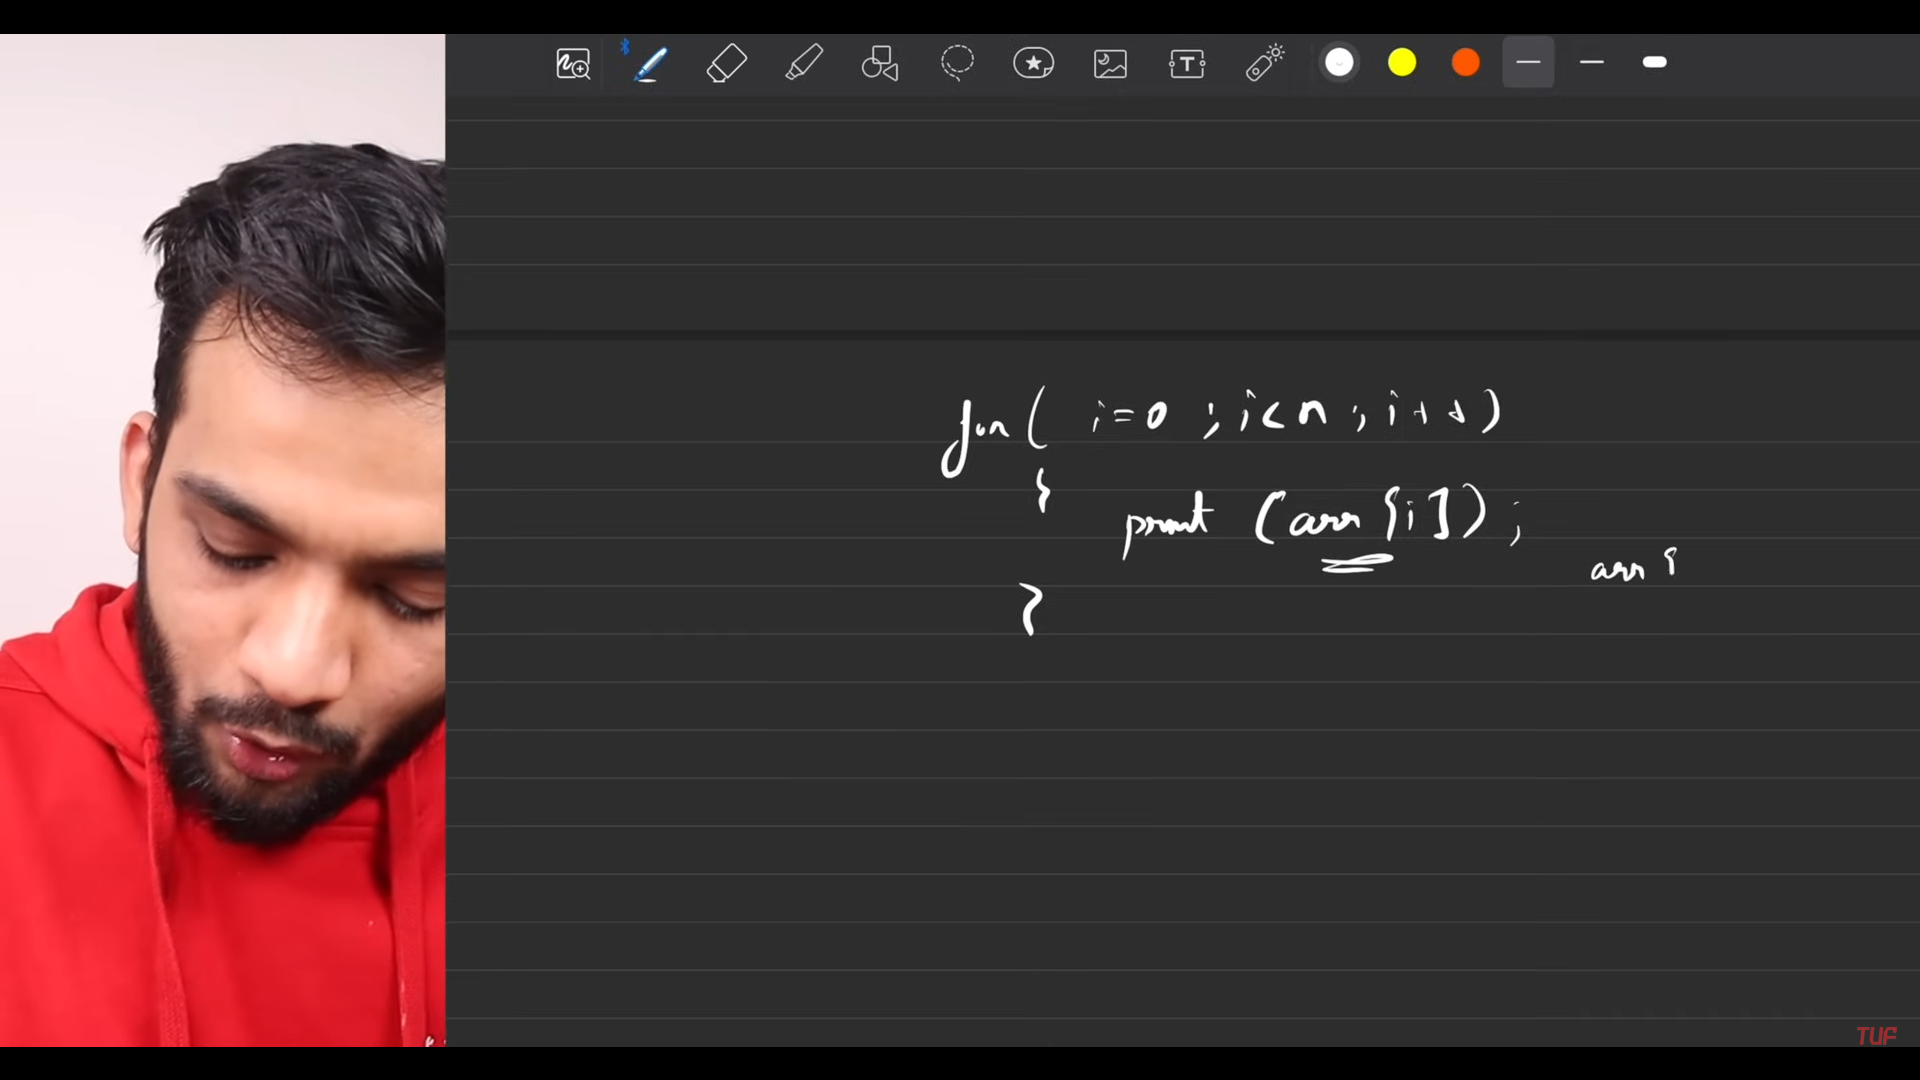 for( i=0 ; i<n ; i++)
{
print (arr[i]);
arr [
}
TUF